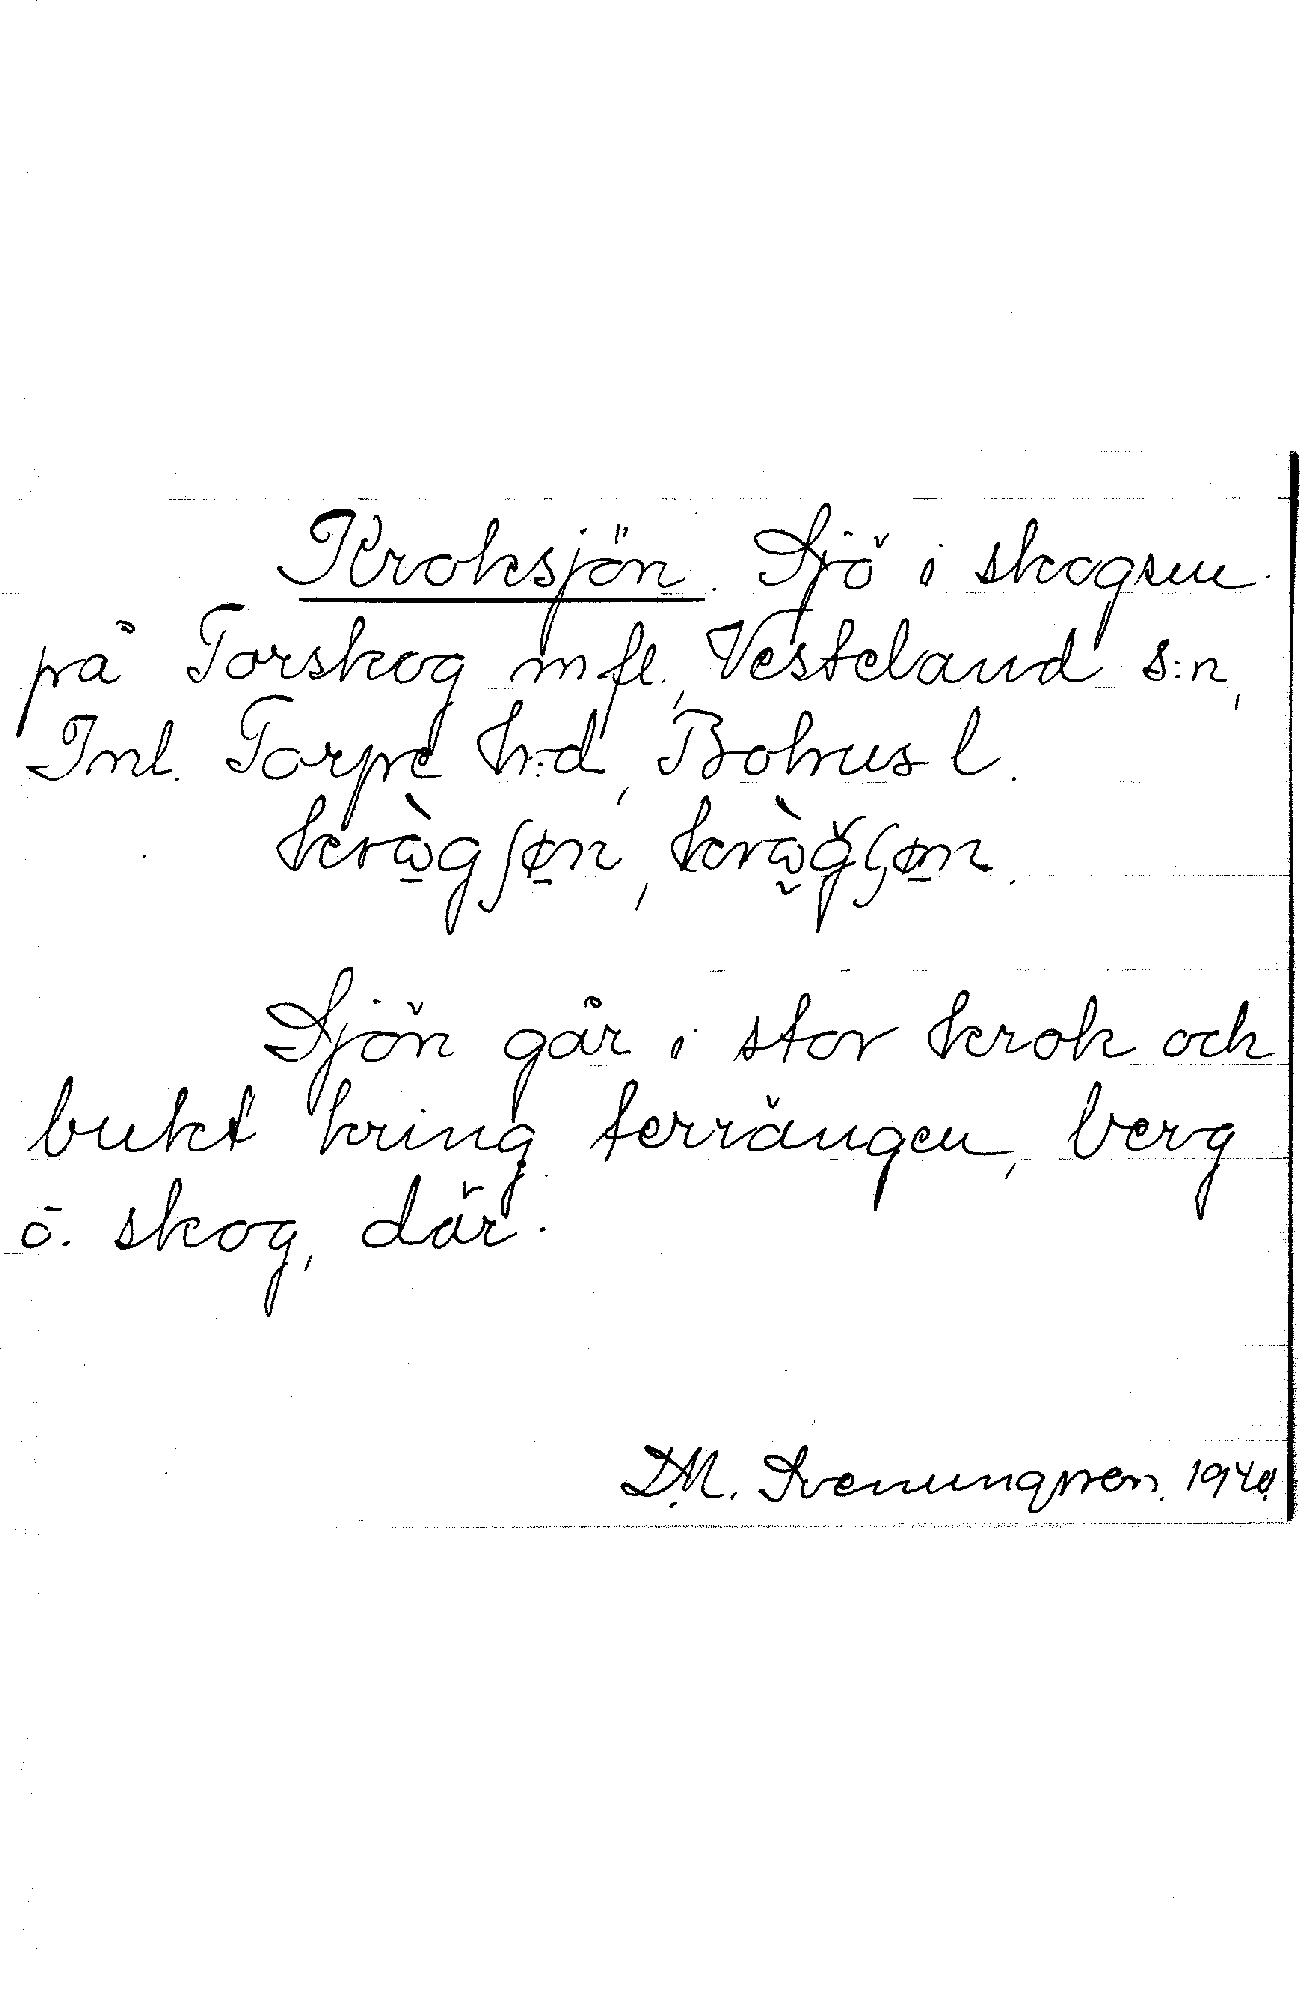 Kroksjön. Sjö i skogen
på Torskog m fl., Vesteland s:n,
Inl. Torpe h:d, Bohus l.
Sjön går i stor krok och
bukt kring terrängen, berg
o. skog, där.
D.M. Svenungsson. 1940.